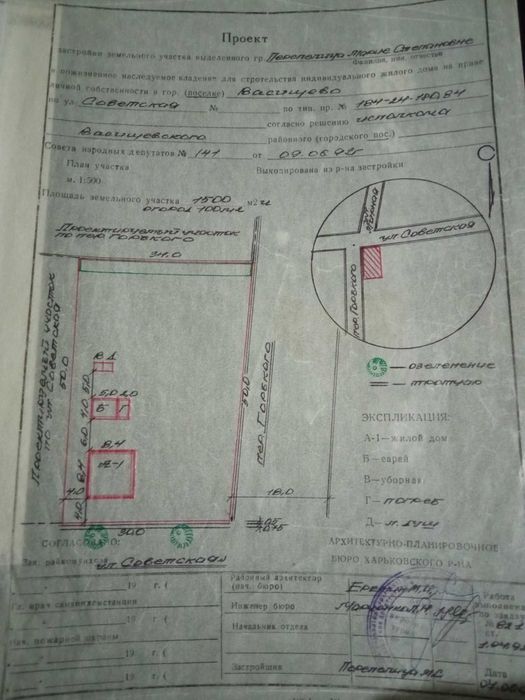 Проект
застройки земельного участка выделенного гр. Перепелица Марие Степановне
Фамилия, имя, отчество
в пожизненное наследуемое владение для строительства индивидуального жилого дома на праве
личной собственности в гор. (поселке) Васищево
по ул. Советская № по тип. пр. № 184-24-180,84
согласно решению исполкома
Васищевского районного (городского пос.)
Совета народных депутатов № 141 от 09.06.92г
План участка Выкопировка из р-на застройки
м. 1:500
Площадь земельного участка 1500 м2
огород 100 м2
Проектируемый участок
по пер. Горького
31,0
пер. Горная
ул. Советская
пер. Горького
Проектируемый участок
по ул. Советской
50,0
50,0
пер. Горького
В Д
5,0
5,0 2,0
4,0 Б Г
6,0
8,4
8,4 А-1
4,0
4,0
30,0
18,0
— озеленение
— тротуар
ЭКСПЛИКАЦИЯ:
А-1—жилой дом
Б—сарай
В—уборная
Г—погреб
Д—л. душ
СОГЛАСОВАНО:
ул. Советская
АРХИТЕКТУРНО-ПЛАНИРОВОЧНОЕ
БЮРО ХАРЬКОВСКОГО Р-НА
19 г. (
Районный архитектор
(нач. бюро)
Гл. врач санэпидемстанции
Инженер бюро
19 г. (
Начальник отдела
Нач. пожарной охраны
19 г. (
19 г. (
Застройщик Перепелица М.С.
Работа
выполнена
по заказу
№ 821
от
Дата